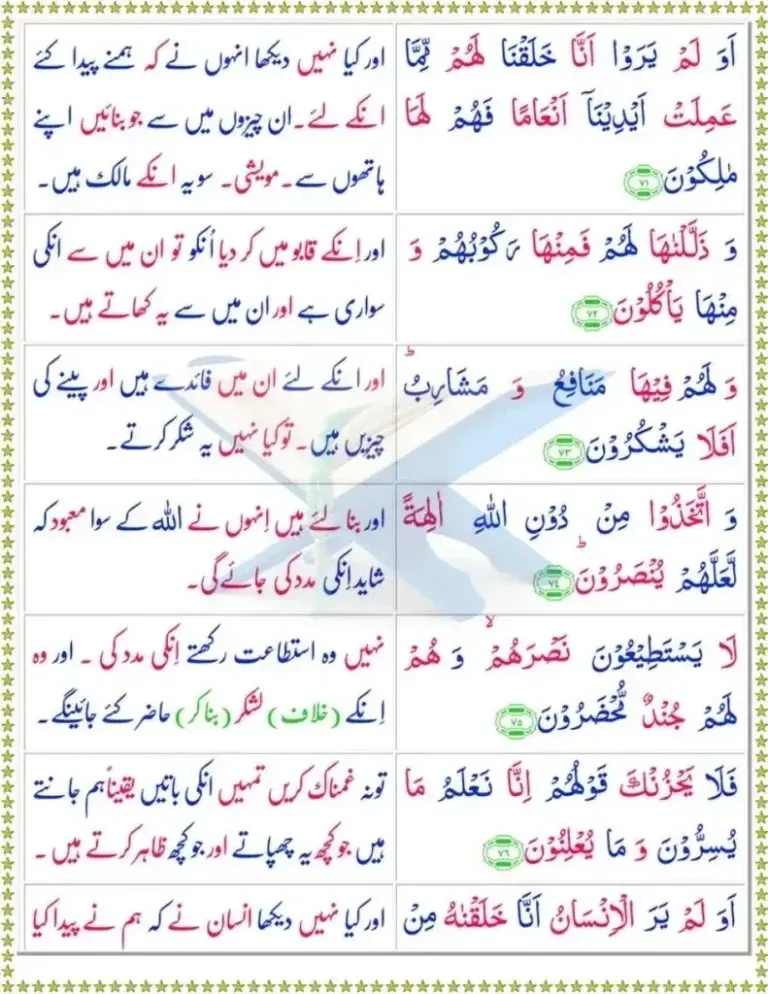 اَوَ لَمْ يَرَوْا اَنَّا خَلَقْنَا لَهُمْ مِّمَّا
عَمِلَتْ اَيْدِيْنَاۤ اَنْعَامًا فَهُمْ لَهَا
مٰلِكُوْنَ ﴿۷۱﴾
اور کیا نہیں دیکھا انہوں نے کہ ہمنے پیدا کئے
انکے لئے۔ ان چیزوں میں سے جو بنائیں اپنے
ہاتھوں سے۔ مویشی۔ سو یہ انکے مالک ہیں۔
وَ ذَلَّلْنٰهَا لَهُمْ فَمِنْهَا رَكُوْبُهُمْ وَ
مِنْهَا يَاْكُلُوْنَ ﴿۷۲﴾
اور اِنکے قابو میں کر دیا اُنکو تو ان میں سے انکی
سواری ہے اور ان میں سے یہ کھاتے ہیں۔
وَ لَهُمْ فِيْهَا مَنَافِعُ وَ مَشَارِبُ ؕ
اَفَلَا يَشْكُرُوْنَ ﴿۷۳﴾
اور انکے لئے ان میں فائدے ہیں اور پینے کی
چیزیں ہیں۔ تو کیا نہیں یہ شکر کرتے۔
وَ اتَّخَذُوْا مِنْ دُوْنِ اللّٰهِ اٰلِهَةً
لَّعَلَّهُمْ يُنْصَرُوْنَ ؕ ﴿۷۴﴾
اور بنا لئے ہیں اِنہوں نے اللہ کے سوا معبود کہ
شاید اِنکی مدد کی جائے گی۔
لَا يَسْتَطِيْعُوْنَ نَصْرَهُمْ ۙ وَ هُمْ
لَهُمْ جُنْدٌ مُّحْضَرُوْنَ ﴿۷۵﴾
نہیں وہ استطاعت رکھتے اِنکی مدد کی ۔ اور وہ
اِنکے (خلاف) لشکر (بنا کر) حاضر کئے جائینگے۔
فَلَا يَحْزُنْكَ قَوْلُهُمْ ۘ اِنَّا نَعْلَمُ مَا
يُسِرُّوْنَ وَ مَا يُعْلِنُوْنَ ﴿۷۶﴾
تو نہ غمناک کریں تمہیں انکی باتیں یقیناً ہم جانتے
ہیں جو کچھ یہ چھپاتے اور جو کچھ ظاہر کرتے ہیں ۔
اَوَ لَمْ يَرَ الْاِنْسَانُ اَنَّا خَلَقْنٰهُ مِنْ
اور کیا نہیں دیکھا انسان نے کہ ہم نے پیدا کیا